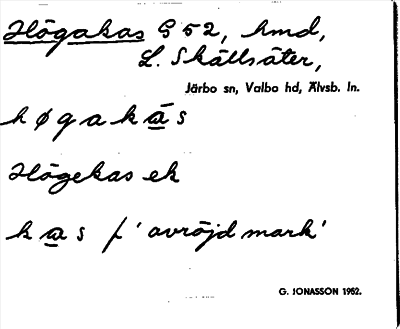 Högakas G 52, hmd,
L. Skällsäter,
Järbo sn, Valbo hd, Älvsb. ln.
høgakás
Högekas ek
kas f 'avröjd mark'
G. JONASSON 1952.